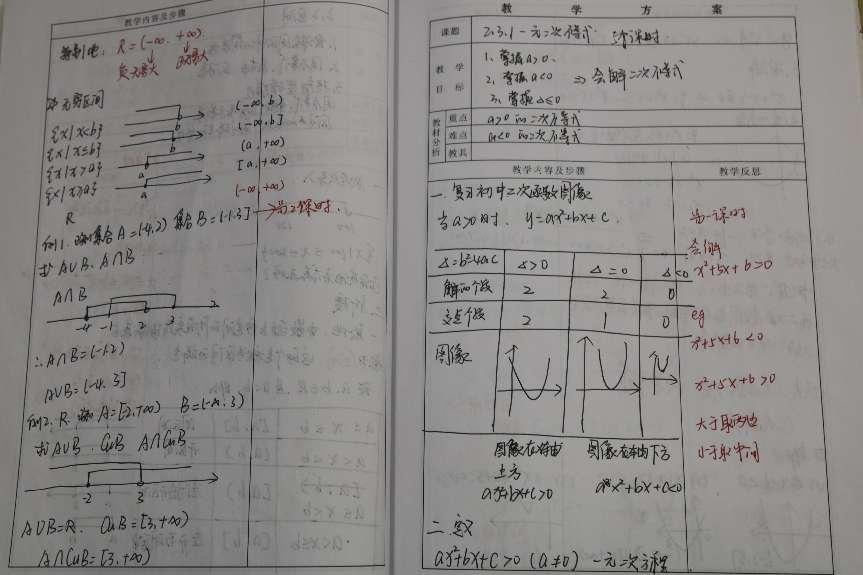 教学内容及步骤
R=(-∞,+∞)
负无穷大 正无穷大
无穷区间
{x|x<b} (-∞,b)
{x|x≤b} (-∞,b]
{x|x>a} (a,+∞)
{x|x≥a} [a,+∞)
R (-∞,+∞)
例1. 集合A=(-4,2) 集合B=(-1,3] 第2课时.
求A∪B、A∩B
A∩B
-4 -1 2 3 x
∴A∩B=(-1,2)
A∪B=(-4,3]
例2. R. A=[-2,+∞) B=(-∞,3)
求A∪B. CuB A∩CuB
-2 3
A∪B=R. CuB=[3,+∞)
A∩CuB=[3,+∞)
教 学 方 案
课题 2.3.1 一元二次不等式
教学目标
1、掌握a>0.
2、掌握a<0 ⇒ 会解二次不等式
3、掌握Δ≤0
教材分析
重点 a>0 的二次不等式
难点 a<0 的二次不等式
教具
教学内容及步骤 教学反思
一. 复习初中二次函数图像
当a>0时. y=ax²+bx+c.
Δ=b²-4ac Δ>0 Δ=0 Δ<0
解的个数 2 2 0
交点个数 2 1 0
图像
图像在轴上方 图像在轴下方
ax²+bx+c>0 ax²+bx+c<0
二. 定义
ax²+bx+c>0 (a≠0) 一元二次方程
第一课时
会解
x²+5x+6=0
eg
x²+5x+6<0
x²+5x+6>0
大于取两边
小于取中间